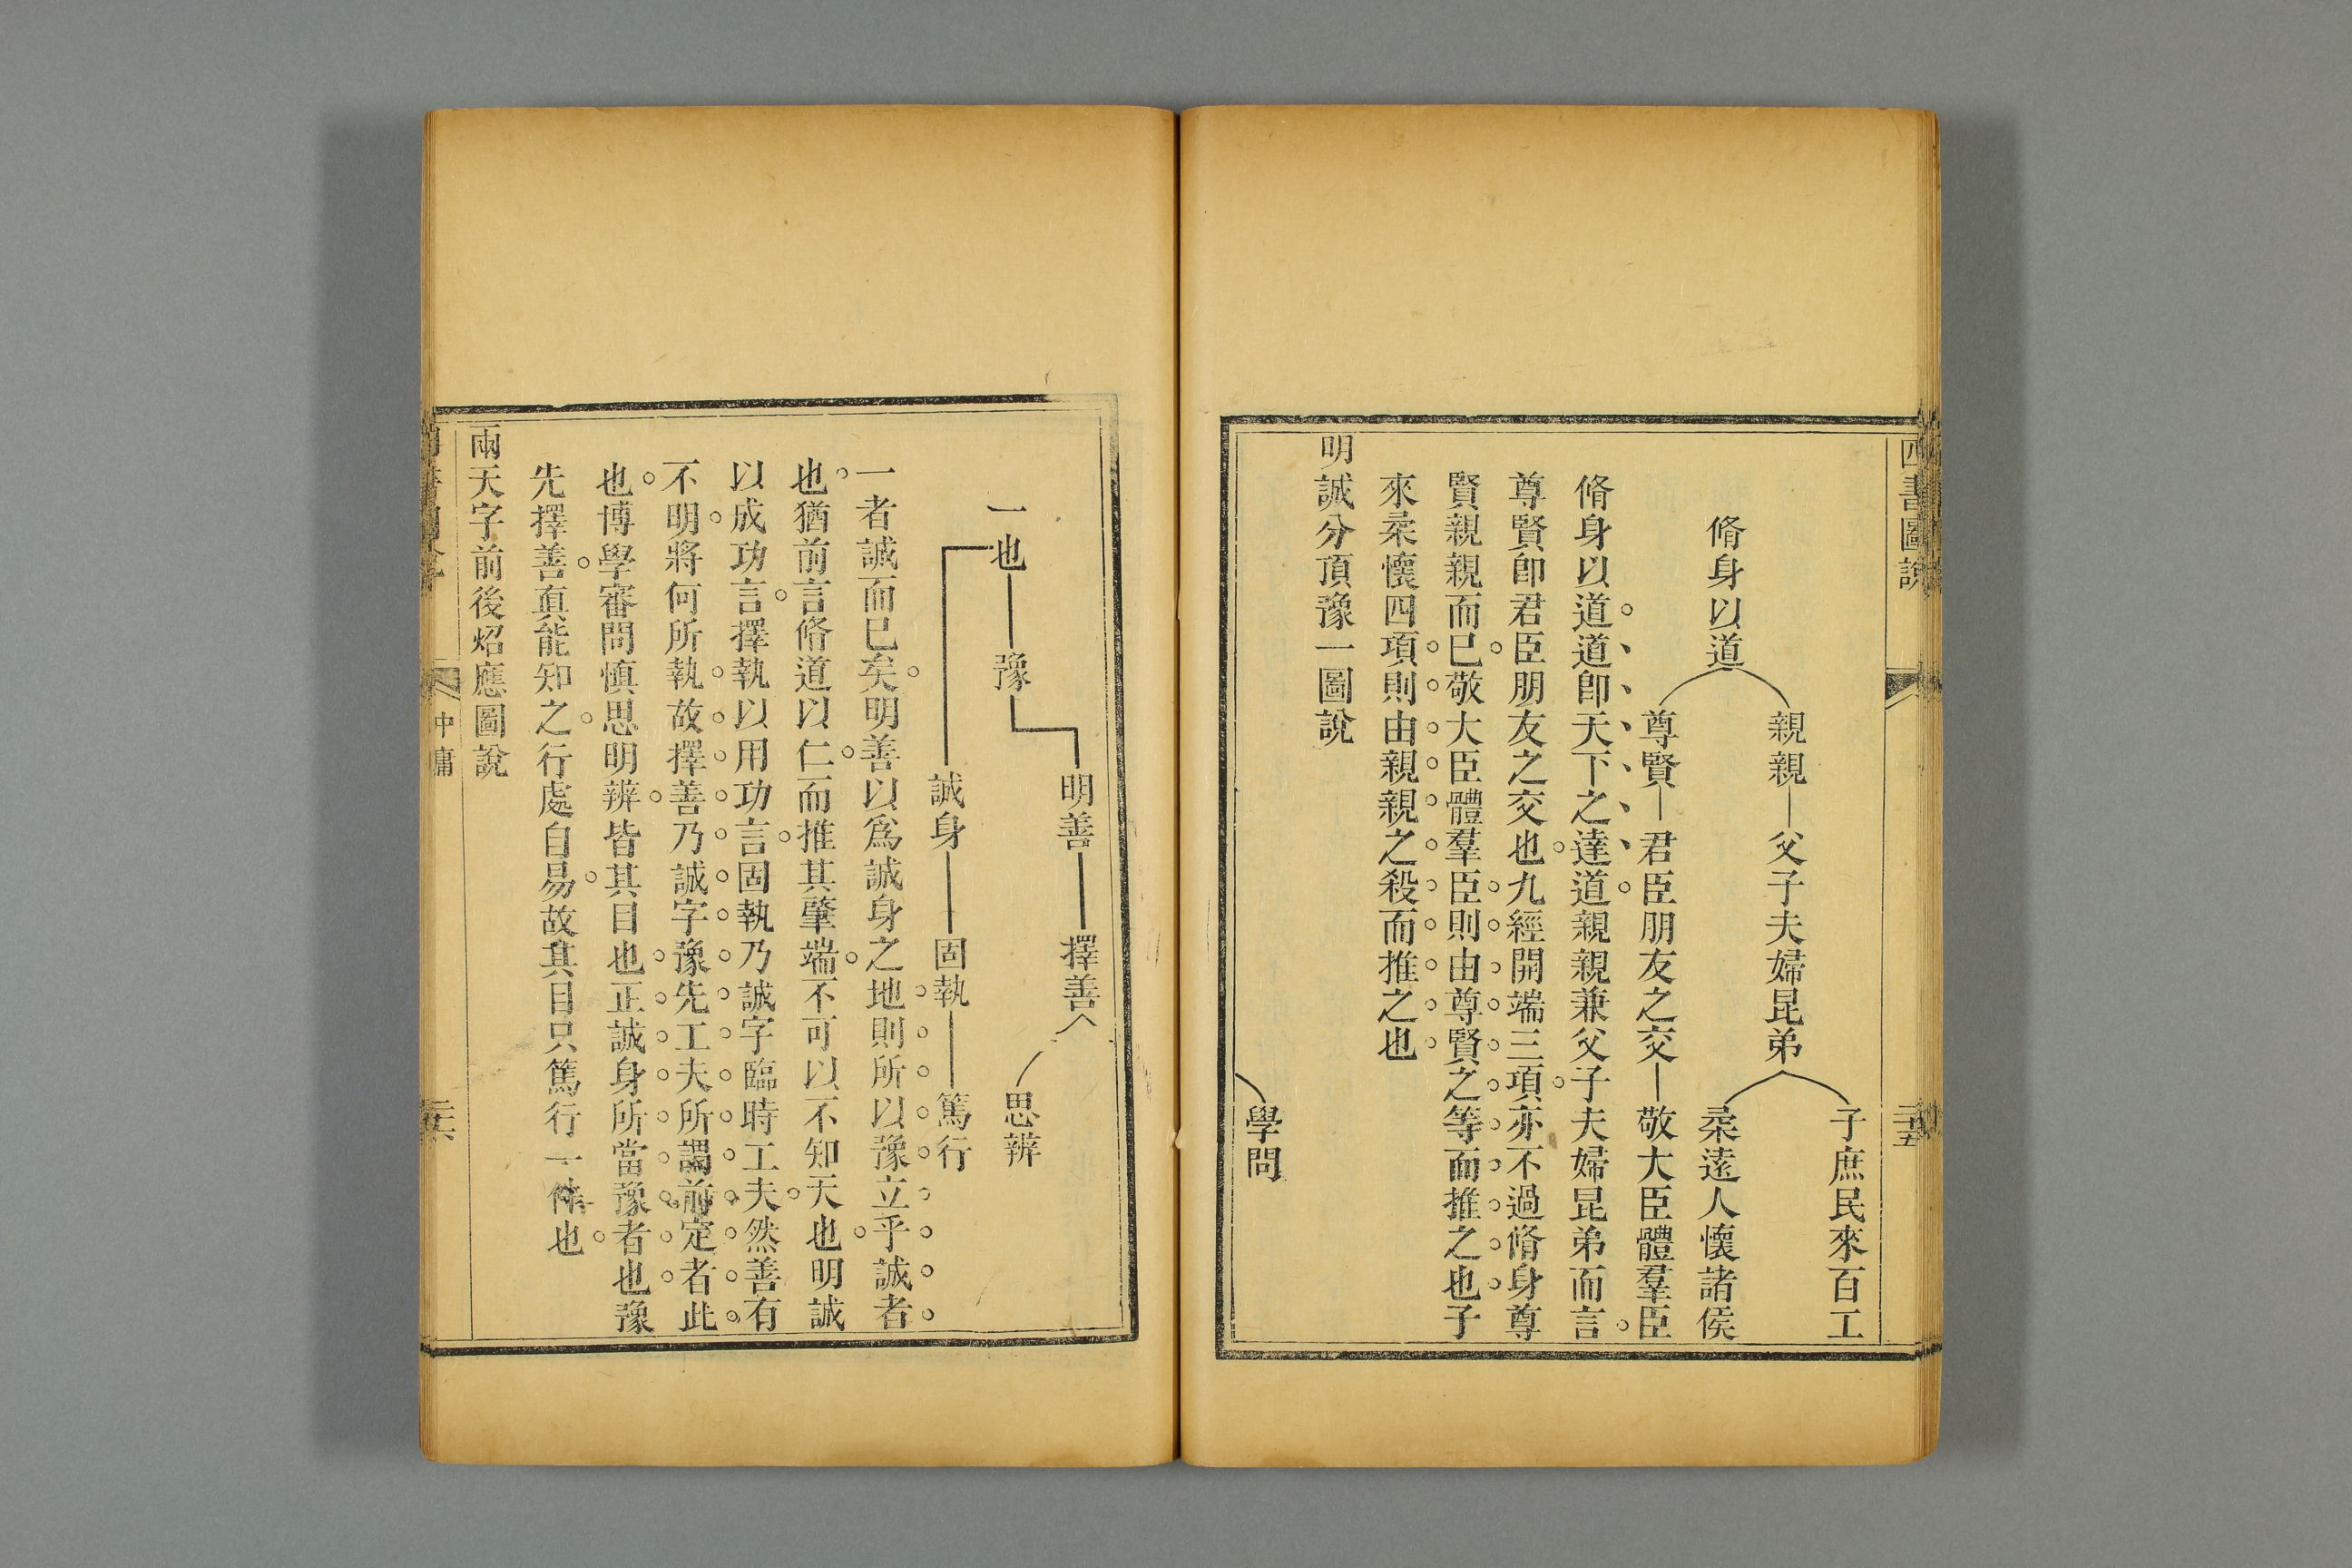 四書圖說
二十五
親親 父子夫婦昆弟 子庶民來百工
柔遠人懷諸侯
脩身以道
尊賢 君臣朋友之交 敬大臣體羣臣
脩身以道道卽天下之達道親親兼父子夫婦昆弟而言
尊賢卽君臣朋友之交也九經開端三項亦不過脩身尊
賢親親而已敬大臣體羣臣則由尊賢之等而推之也子
來柔懷四項則由親親之殺而推之也
明誠分頂豫一圖說
學問
明善 擇善
思辨
一也 豫
誠身 固執 篤行
一者誠而已矣明善以爲誠身之地則所以豫立乎誠者
也猶前言脩道以仁而推其肇端不可以不知天也明誠
以成功言擇執以用功言固執乃誠字臨時工夫然善有
不明將何所執故擇善乃誠字豫先工夫所謂前定者此
也博學審問慎思明辨皆其目也正誠身所當豫者也豫
先擇善真能知之行處自易故其目只篤行一件也
兩天字前後炤應圖說
中庸
二十六